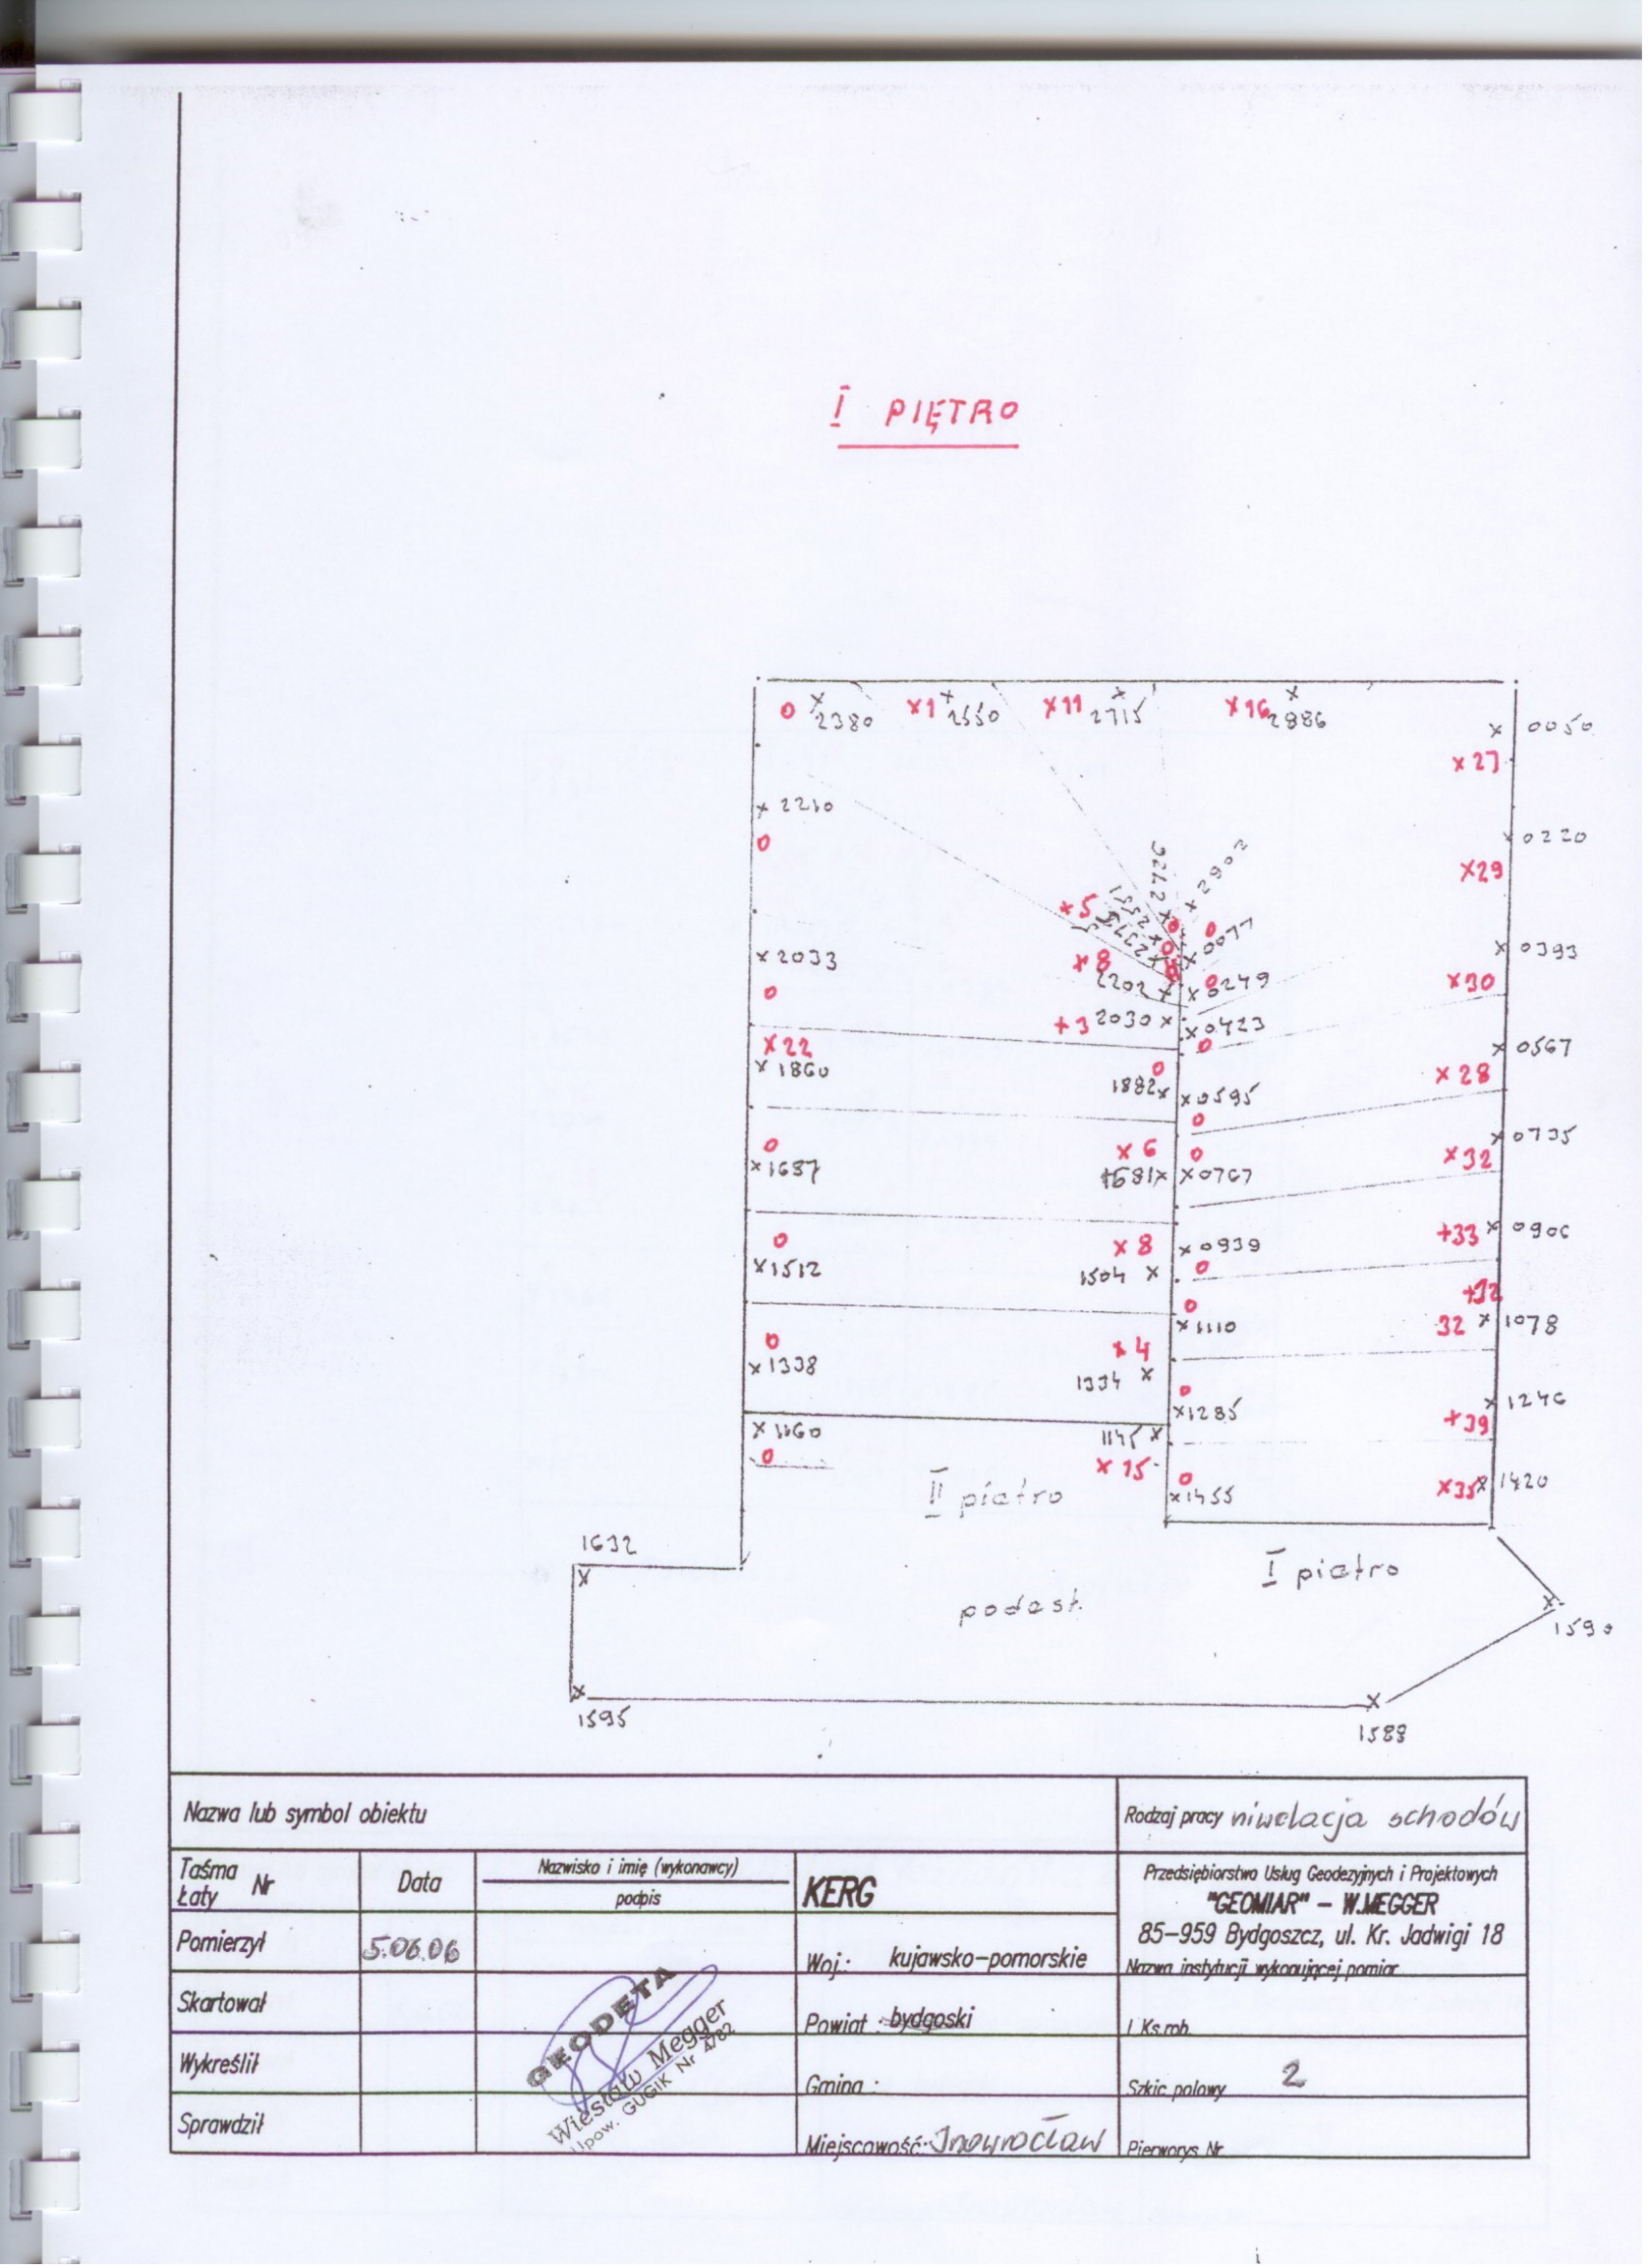 I PIĘTRO
0 2380 x1 2550 x11 2715 x16 2886
0050
x27
2210
0
0220
x29
2726
2902
2551
x5
2375
0
0
0
0077
2033
0
x8
0
0393
2202
0249
0
x30
+3 2030
0423
0
0567
x22
1860
0
1882
0595
0
x28
0735
0
1687
x6
1681
0
0767
x32
0
1512
x8
1504
0939
0
+33
0906
+32
0
1338
x4
1334
0
1110
32
1078
0
1285
1246
+39
1160
0
1145
x15
II piętro
0
1455
x35
1420
1632
I piętro
podest.
1590
1595
1588
Nazwa lub symbol obiektu
Rodzaj pracy niwelacja schodów
Taśma
Łaty Nr
Data
Nazwisko i imię (wykonawcy)
podpis
KERG
Przedsiębiorstwo Usług Geodezyjnych i Projektowych
"GEOMIAR" – W.MEGGER
85-959 Bydgoszcz, ul. Kr. Jadwigi 18
Nazwa instytucji wykonującej pomiar
Pomierzył
5.06.06
Woj: kujawsko-pomorskie
Skartował
Powiat : bydgoski
L.Ks.rob.
Wykreślił
Gmina :
Szkic polowy 2
Sprawdził
Miejscowość: Inowrocław
Pierworys Nr
GEODETA
Wiesław Megger
Upow. GUGiK Nr